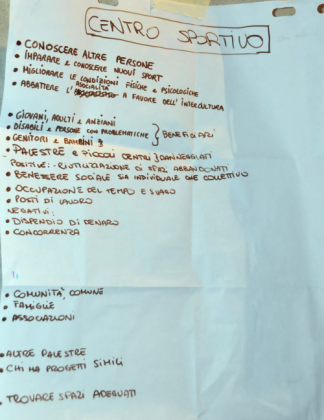 CENTRO SPORTIVO
• CONOSCERE ALTRE PERSONE
• IMPARARE E CONOSCERE NUOVI SPORT
• MIGLIORARE LE CONDIZIONI FISICHE E PSICOLOGICHE
• ABBATTERE L'ASOCIALITÀ A FAVORE DELL'INTERCULTURA
• GIOVANI, ADULTI E ANZIANI
• DISABILI E PERSONE CON PROBLEMATICHE } BENEFICIARI
• GENITORI E BAMBINI
- PALESTRE E PICCOLI CENTRI } DANNEGGIATI
POSITIVE: - RISTRUTTURAZIONE DI SPAZI ABBANDONATI
• BENESSERE SOCIALE SIA INDIVIDUALE CHE COLLETTIVO
• OCCUPAZIONE DEL TEMPO E SVAGO
• POSTI DI LAVORO
NEGATIVI:
• DISPENDIO DI DENARO
• CONCORRENZA
• COMUNITÀ, COMUNE
• FAMIGLIE
• ASSOCIAZIONI
• ALTRE PALESTRE
• CHI HA PROGETTI SIMILI
• TROVARE SPAZI ADEGUATI